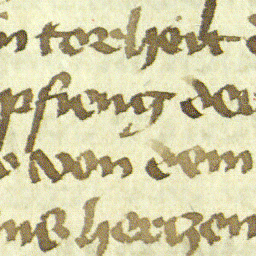 in torheit d
pfieng der
e von dem
ns hertzen